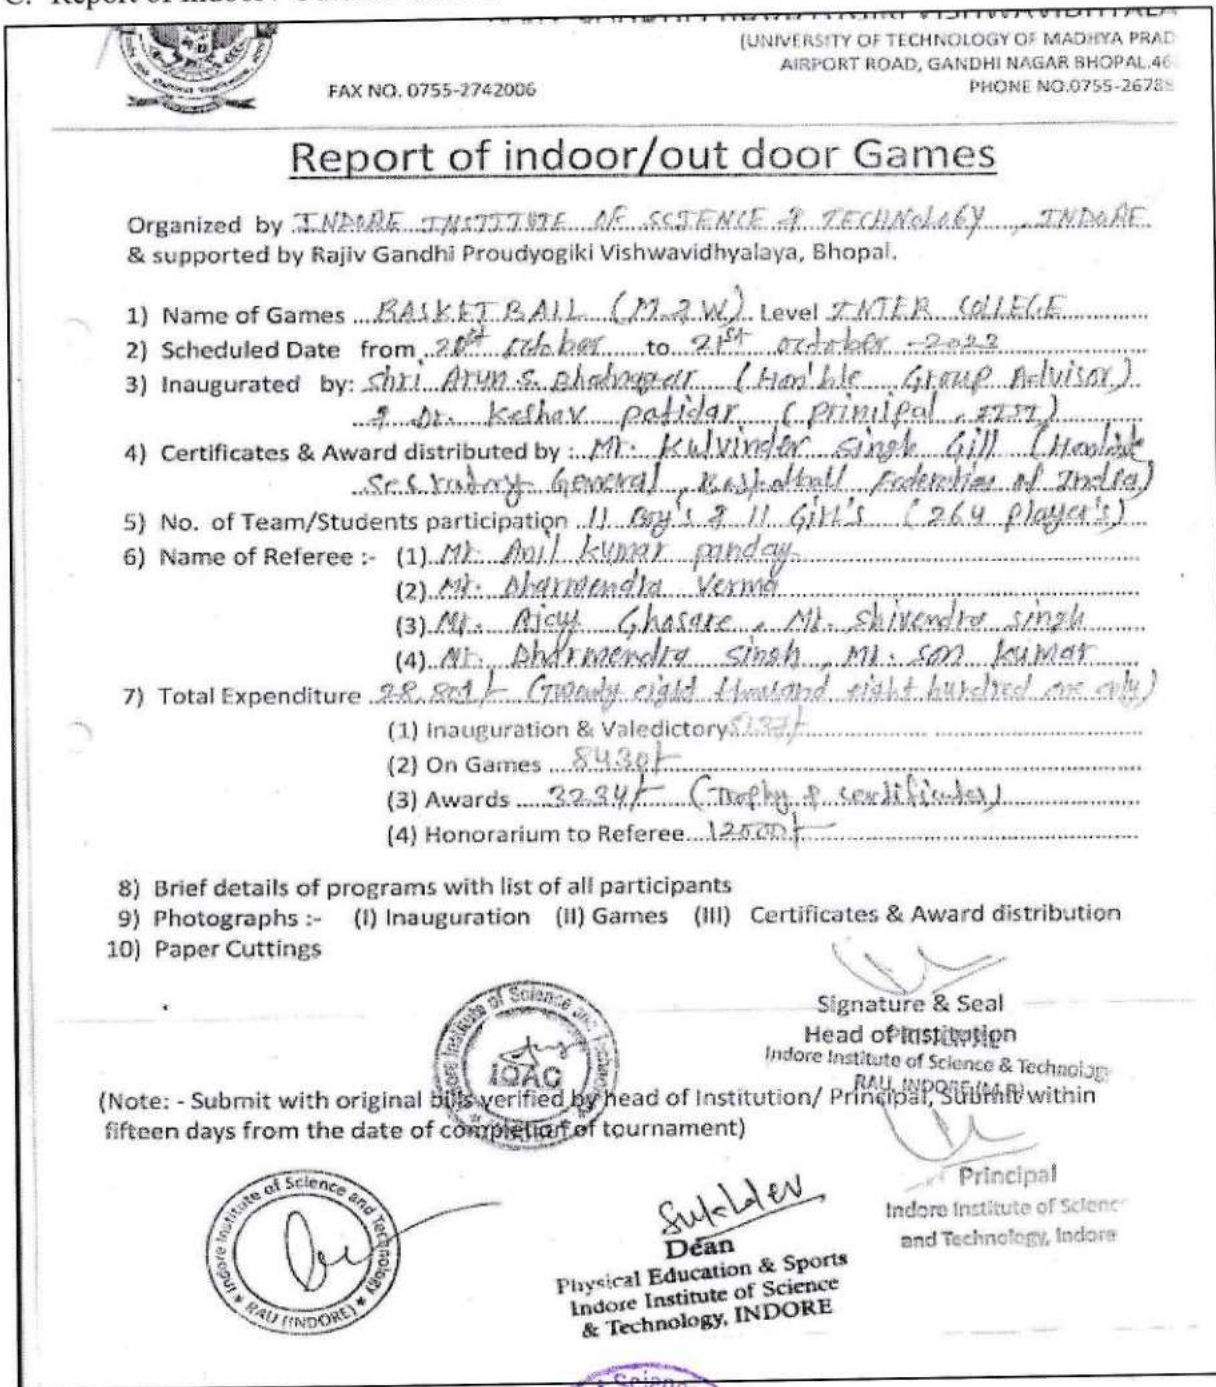 C. Report of Indoor
(UNIVERSITY OF TECHNOLOGY OF MADHYA PRAD
AIRPORT ROAD, GANDHI NAGAR BHOPAL.46
FAX NO. 0755-2742006
PHONE NO.0755-2678
Report of indoor/out door Games
Organized by INDORE INSTITUTE OF SCIENCE & TECHNOLOGY, INDORE
& supported by Rajiv Gandhi Proudyogiki Vishwavidhyalaya, Bhopal.
1) Name of Games BASKET BALL (M & W) Level INTER COLLEGE
2) Scheduled Date from 20st october to 21st october -2022
3) Inaugurated by: Shri Arun S. Bhatnagar (Hon'ble Group Advisor)
& Dr. Keshav patidar (prinipal, IIST)
4) Certificates & Award distributed by : Mr. Kulvinder Singh Gill (Honble
General, Basketball Federation of India)
5) No. of Team/Students participation 11 Boy's & 11 Girl's (264 player's)
6) Name of Referee :- (1) Mr. Anil kumar panday
(2) Mr. Dharmendra Verma
(3) Mr. Ajay Ghasare, Mr. Shivendra singh
(4) Mr. Dharmendra Singh, Mr. kumar
7) Total Expenditure 28,801/- (Twenty eight thousand eight hundred one only)
(1) Inauguration & Valedictory 5137/-
(2) On Games 8430/-
(3) Awards 3234/- (Trophy & certificates)
(4) Honorarium to Referee 12000/-
8) Brief details of programs with list of all participants
9) Photographs :- (I) Inauguration (II) Games (III) Certificates & Award distribution
10) Paper Cuttings
Signature & Seal
Head of Institution
Indore Institute of Science & Technology
RAU, INDORE (M.P.)
Indore Institute of Science and Technology
IQAC
(Note: - Submit with original bills verified by head of Institution/ Principal, Submit within
fifteen days from the date of completion of tournament)
Principal
Indore Institute of Scienc
and Technology, Indore
Indore Institute of Science and Technology
RAU (INDORE)
Sukhdev
Dean
Physical Education & Sports
Indore Institute of Science
& Technology, INDORE